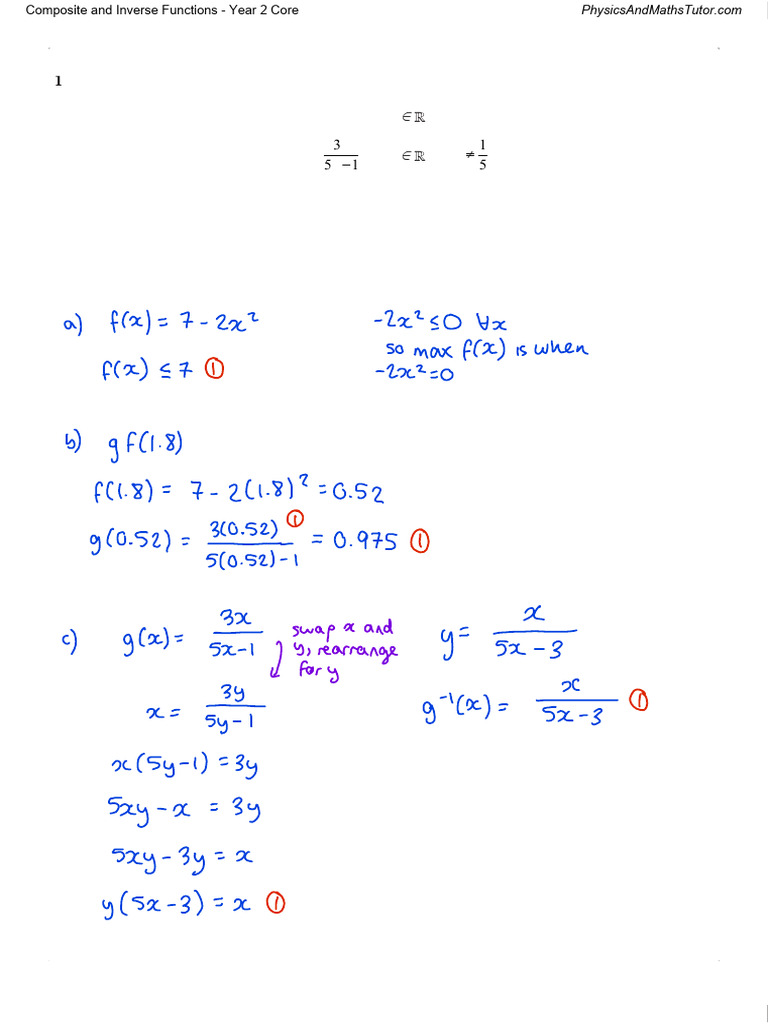 Composite and Inverse Functions - Year 2 Core PhysicsAndMathsTutor.com
1
∈ℝ
3
5 −1
∈ℝ
≠ 1/5
a) f(x) = 7 - 2x²
f(x) ≤ 7 ①
-2x² ≤ 0 ∀x
so max f(x) is when
-2x² = 0
b) gf(1.8)
f(1.8) = 7 - 2(1.8)² = 0.52
g(0.52) = 3(0.52) ① / 5(0.52)-1 = 0.975 ①
c) g(x) = 3x / 5x-1
swap x and
y, rearrange
for y
x = 3y / 5y-1
x(5y-1) = 3y
5xy - x = 3y
5xy - 3y = x
y(5x-3) = x ①
y = x / 5x - 3
g⁻¹(x) = x / 5x - 3 ①